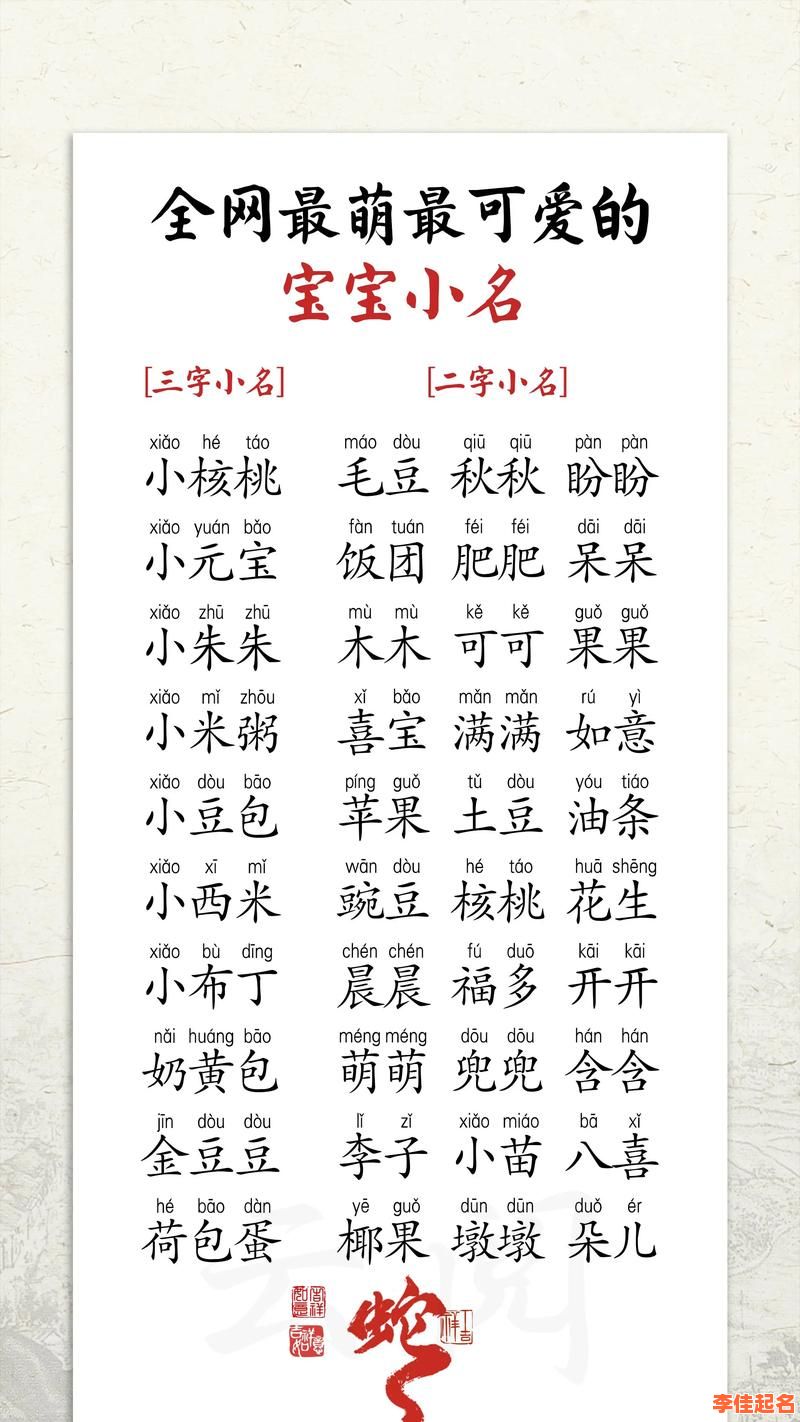 全网最萌最可爱的
宝宝小名
[三字小名] [二字小名]
xiǎo hé táo máo dòu qiū qiū pàn pàn
小核桃 毛豆 秋秋 盼盼
xiǎo yuán bǎo fàn tuán féi féi dāi dāi
小元宝 饭团 肥肥 呆呆
xiǎo zhū zhū mù mù kě kě guǒ guǒ
小朱朱 木木 可可 果果
xiǎo mǐ zhōu xǐ bǎo mǎn mǎn rú yì
小米粥 喜宝 满满 如意
xiǎo dòu bāo píng guǒ tǔ dòu yóu tiáo
小豆包 苹果 土豆 油条
xiǎo xī mǐ wān dòu hé táo huā shēng
小西米 豌豆 核桃 花生
xiǎo bù dīng chén chén fú duō kāi kāi
小布丁 晨晨 福多 开开
nǎi huáng bāo méng méng dōu dōu hán hán
奶黄包 萌萌 兜兜 含含
jīn dòu dòu lǐ zǐ xiǎo miáo bā xǐ
金豆豆 李子 小苗 八喜
hé bāo dàn yē guǒ dūn dūn duǒ ér
荷包蛋 椰果 墩墩 朵儿
云阅
蛇
李佳起名